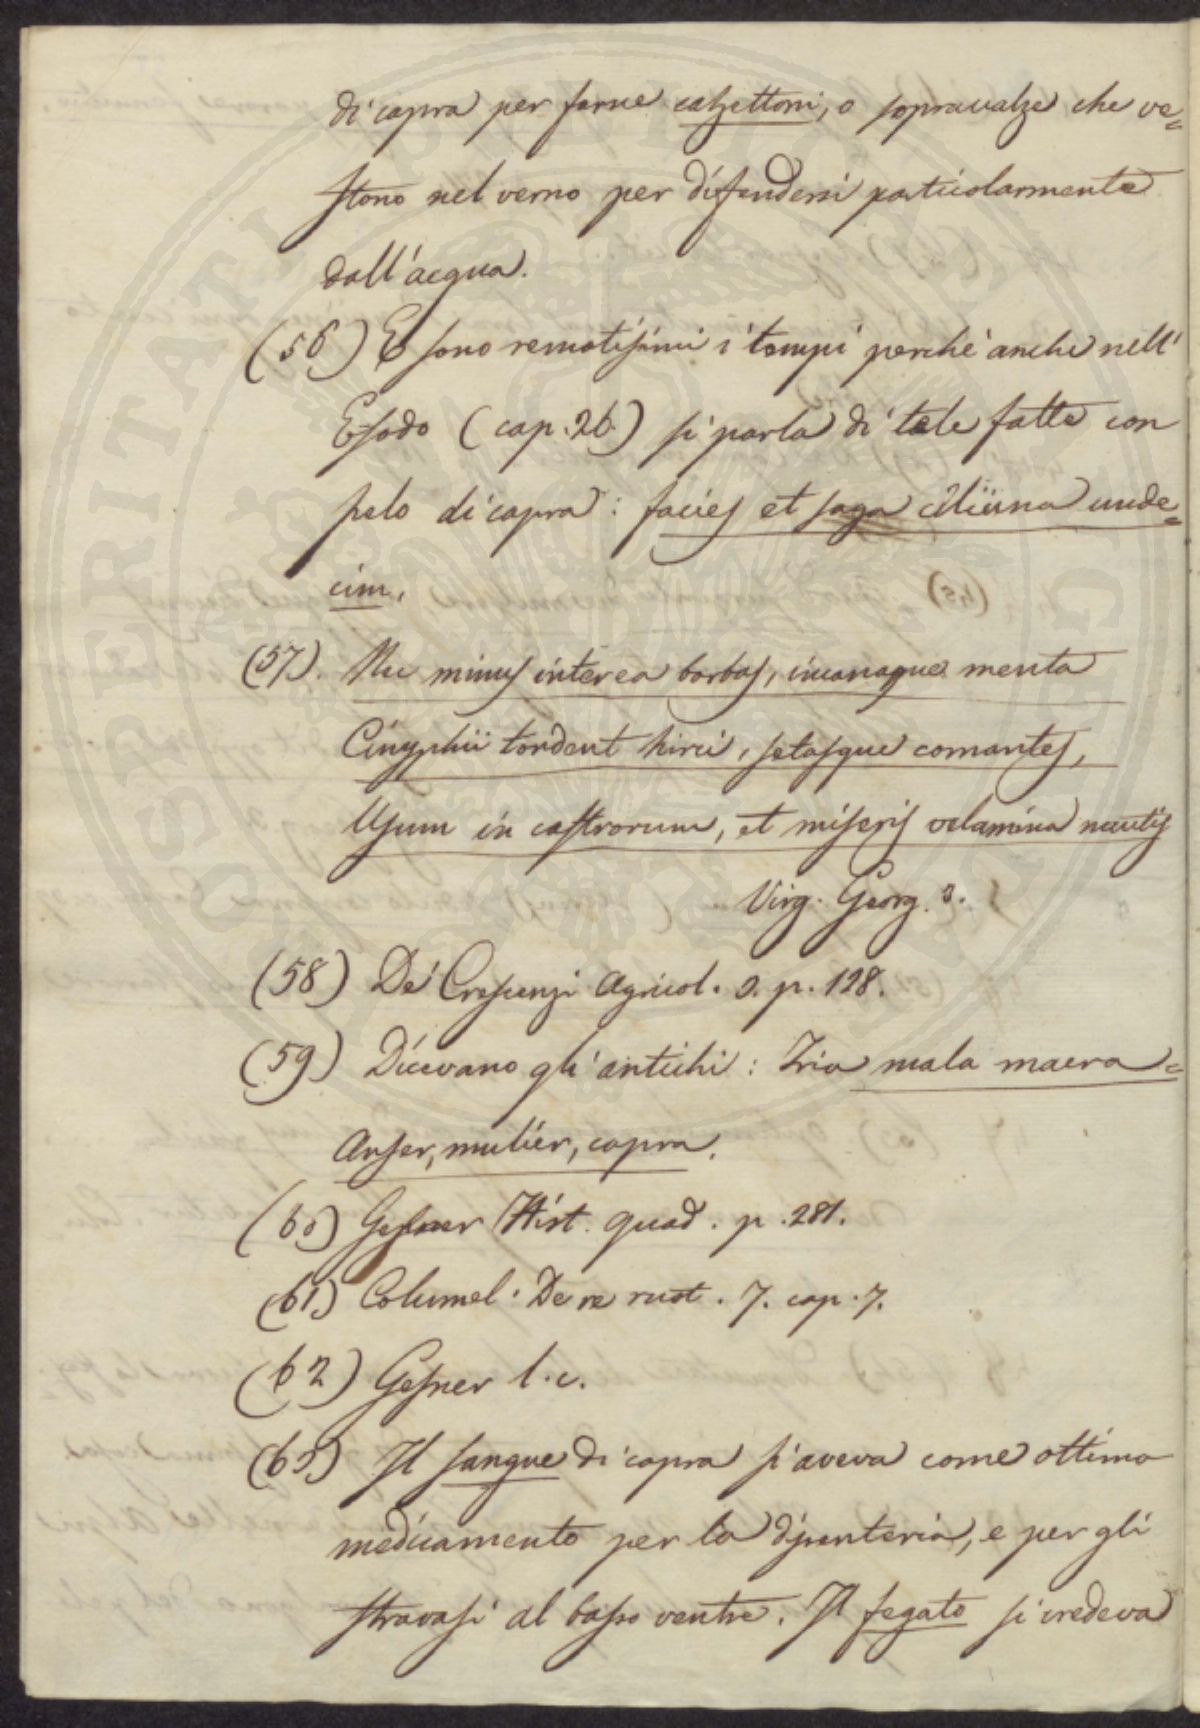 di capra per farne calzettoni, o sopracalze che ve=
stono nel verno per difendersi particolarmente
dall'acqua.
(56) E sono remotissimi i tempi perchè anche nell'
Esodo (cap. 26.) si parla di tele fatte con
pelo di capra: facies et saga cilicina unde=
cim.
(57). Nec minus interea barbas, incanaque menta
Cinyphii tondent hirci, setasque comantes,
Usum in castrorum, et miseris velamina nautis
Virg. Georg. 3.
(58) De' Crescenzi Agricol. 2. p. 128.
(59) Dicevano gli antichi: Tria mala macra=
Anser, mulier, capra.
(60) Gesner Hist. quad. p. 281.
(61) Columel. De re rust. 7. cap. 7.
(62) Gesner l. c.
(63) Il sangue di capra si aveva come ottimo
medicamento per la dissenteria, e per gli
stravasi al basso ventre. Il fegato si credeva
ASPERITATI PUBLICAE